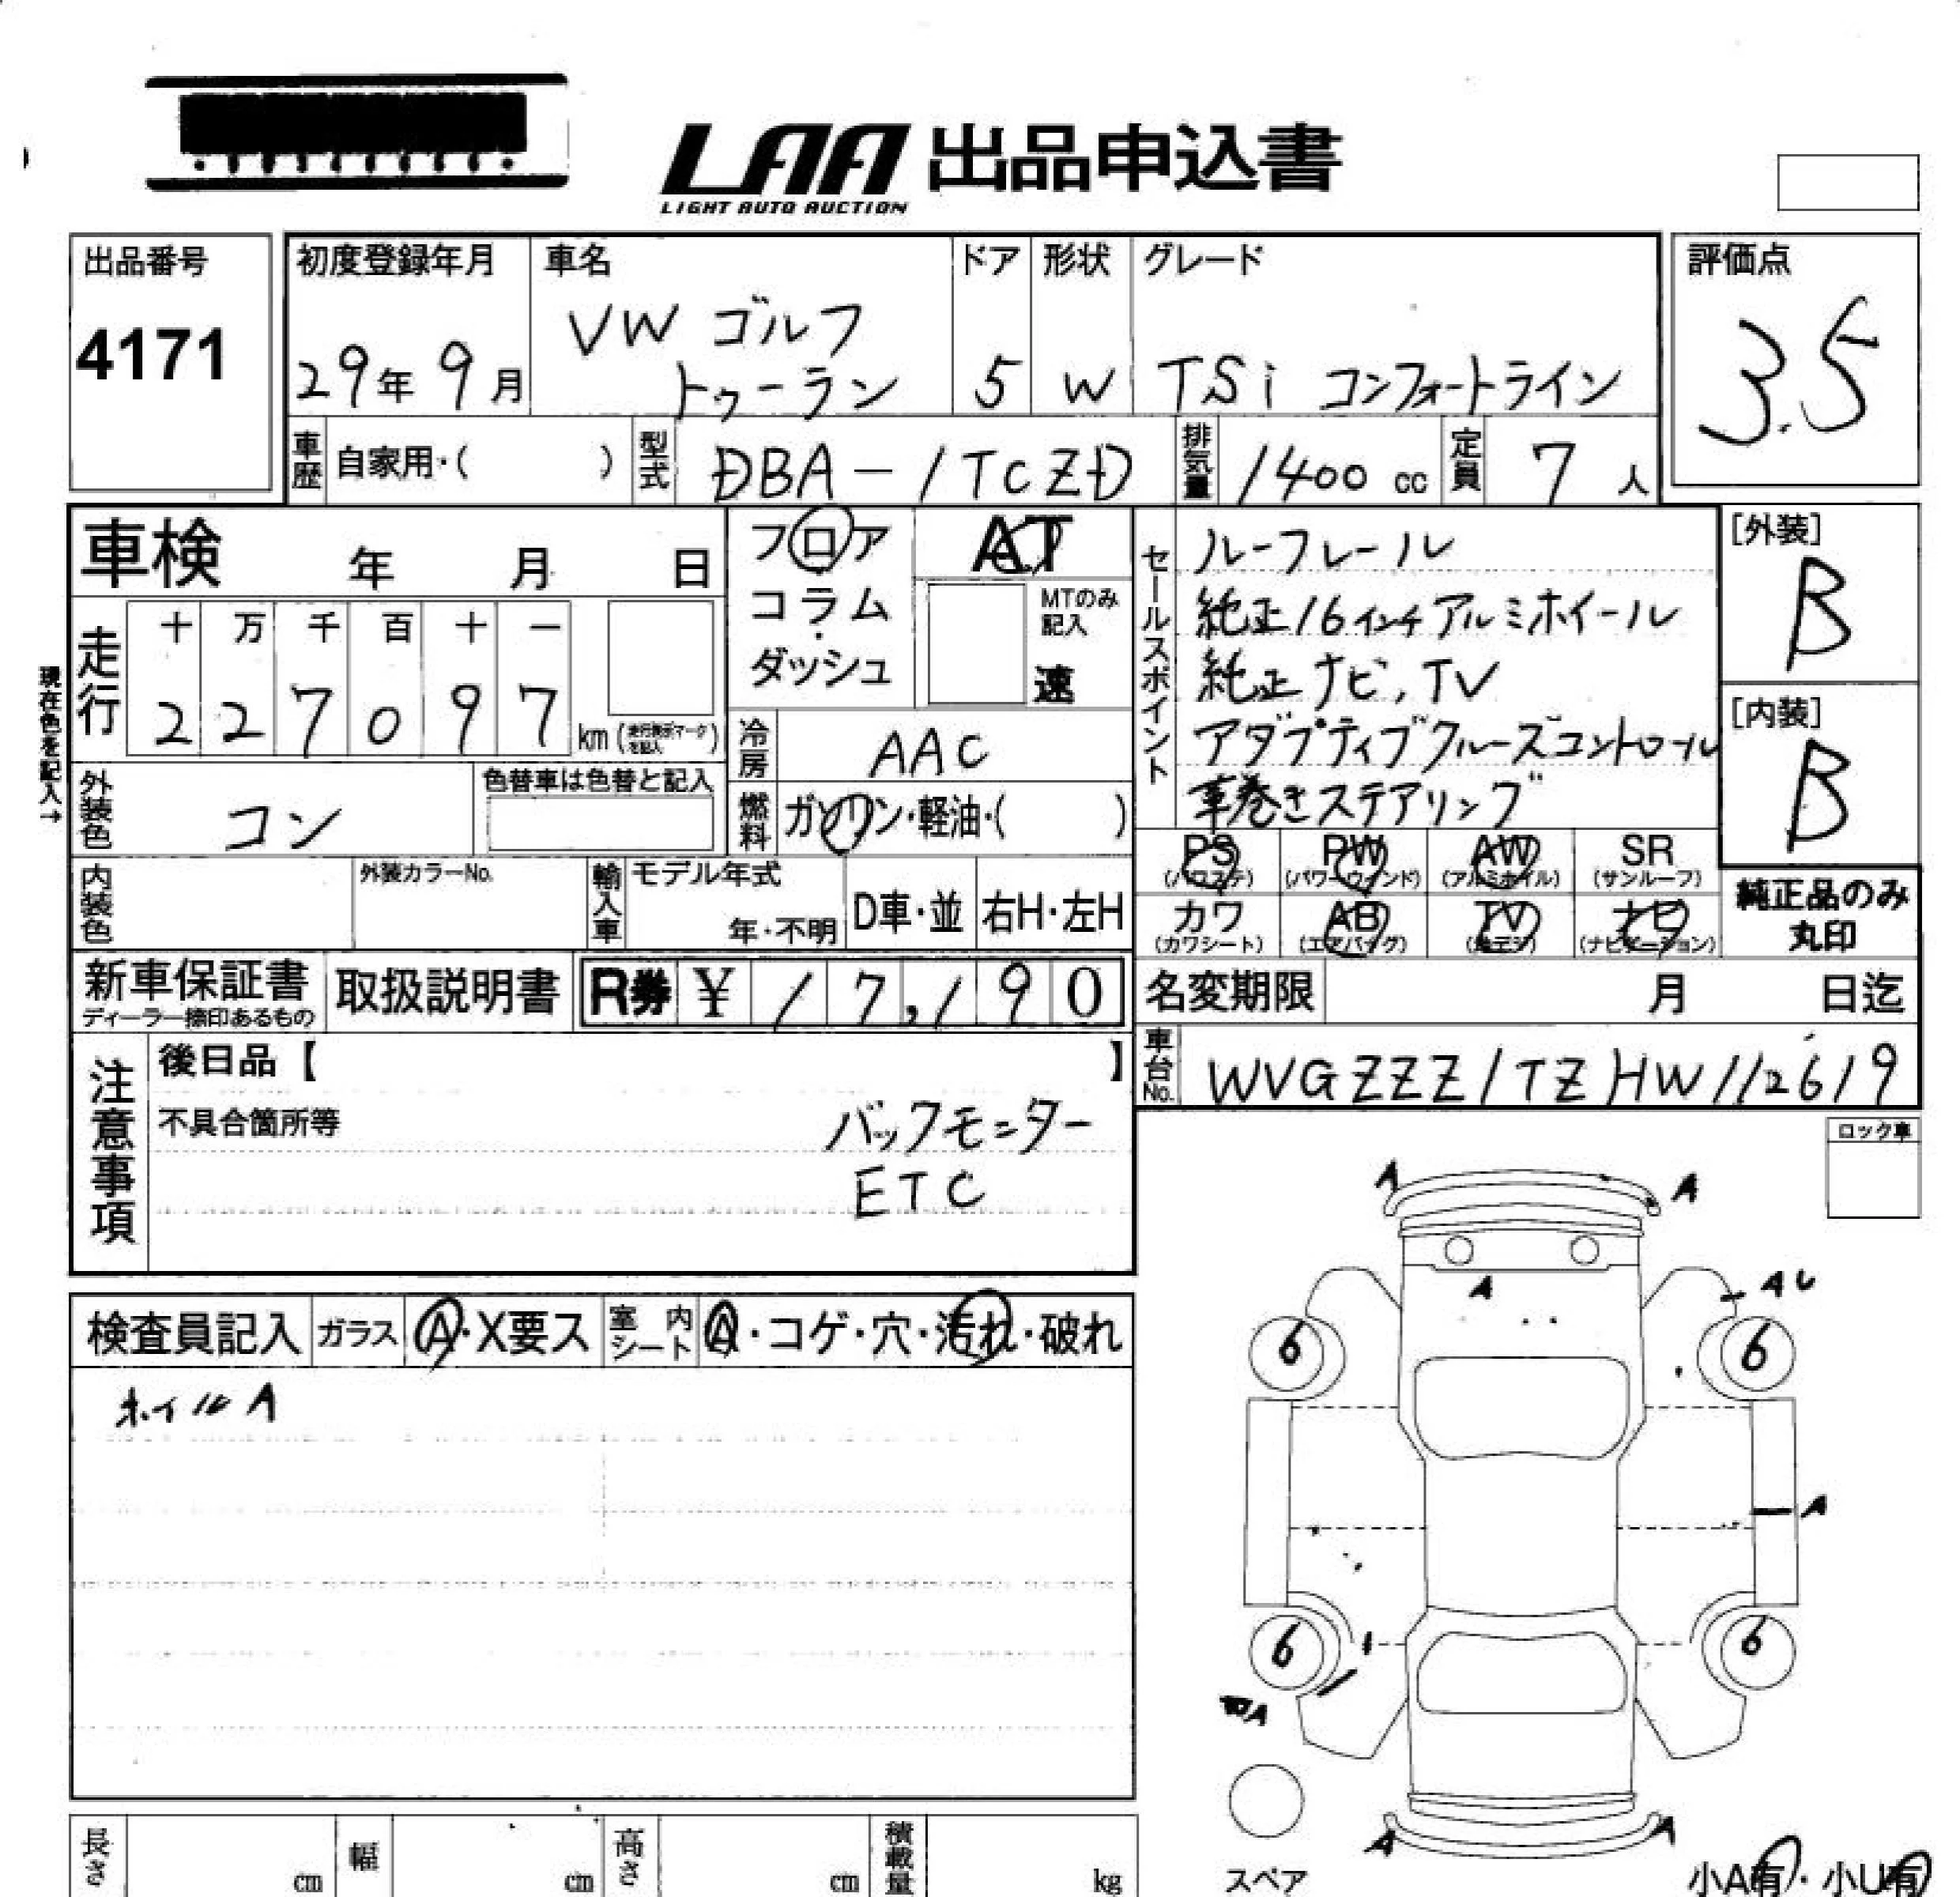 LAA 出品申込書
LIGHT AUTO AUCTION
出品番号
4171
初度登録年月
29年 9月
車名
VW ゴルフ
トゥーラン
ドア
5
形状
W
グレード
TSi コンフォートライン
評価点
3.5
車歴
自家用・( )
型式
DBA-1TCZD
排気量
1400 cc
定員
7 人
車検 年 月 日
現在色を記入→
走行
十 万 千 百 十 一
2 2 7 0 9 7 km(走行表示マークを記入)
フロア
コラム
・
ダッシュ
AT
MTのみ
記入
速
冷房
AAC
燃料
ガソリン・軽油・( )
外装色
コン
色替車は色替と記入
内装色
外装カラーNo.
輸入車
モデル年式
年・不明
D車・並
右H・左H
セールスポイント
ルーフレール
純正16インチアルミホイール
純正ナビ,TV
アダプティブクルーズコントロール
革巻きステアリング
[外装]
B
[内装]
B
PS
(パワステ)
PW
(パワーウィンド)
AW
(アルミホイル)
SR
(サンルーフ)
カワ
(カワシート)
AB
(エアバッグ)
TV
(地デジ)
ナビ
(ナビゲーション)
純正品のみ
丸印
新車保証書
ディーラー捺印あるもの
取扱説明書
R券 ¥ 17,190
名変期限 月 日迄
車台No.
WVGZZZ1TZHW112619
注意事項
後日品【 】
不具合箇所等
バックモニター
ETC
ロック車
検査員記入
ガラス
A・X要ス
室内シート
A・コゲ・穴・汚れ・破れ
ホイルA
A
A
A
AU
6
6
A
6
6
A
A
A
スペア
小A有・小U有
長さ cm
幅 cm
高さ cm
積載量 kg